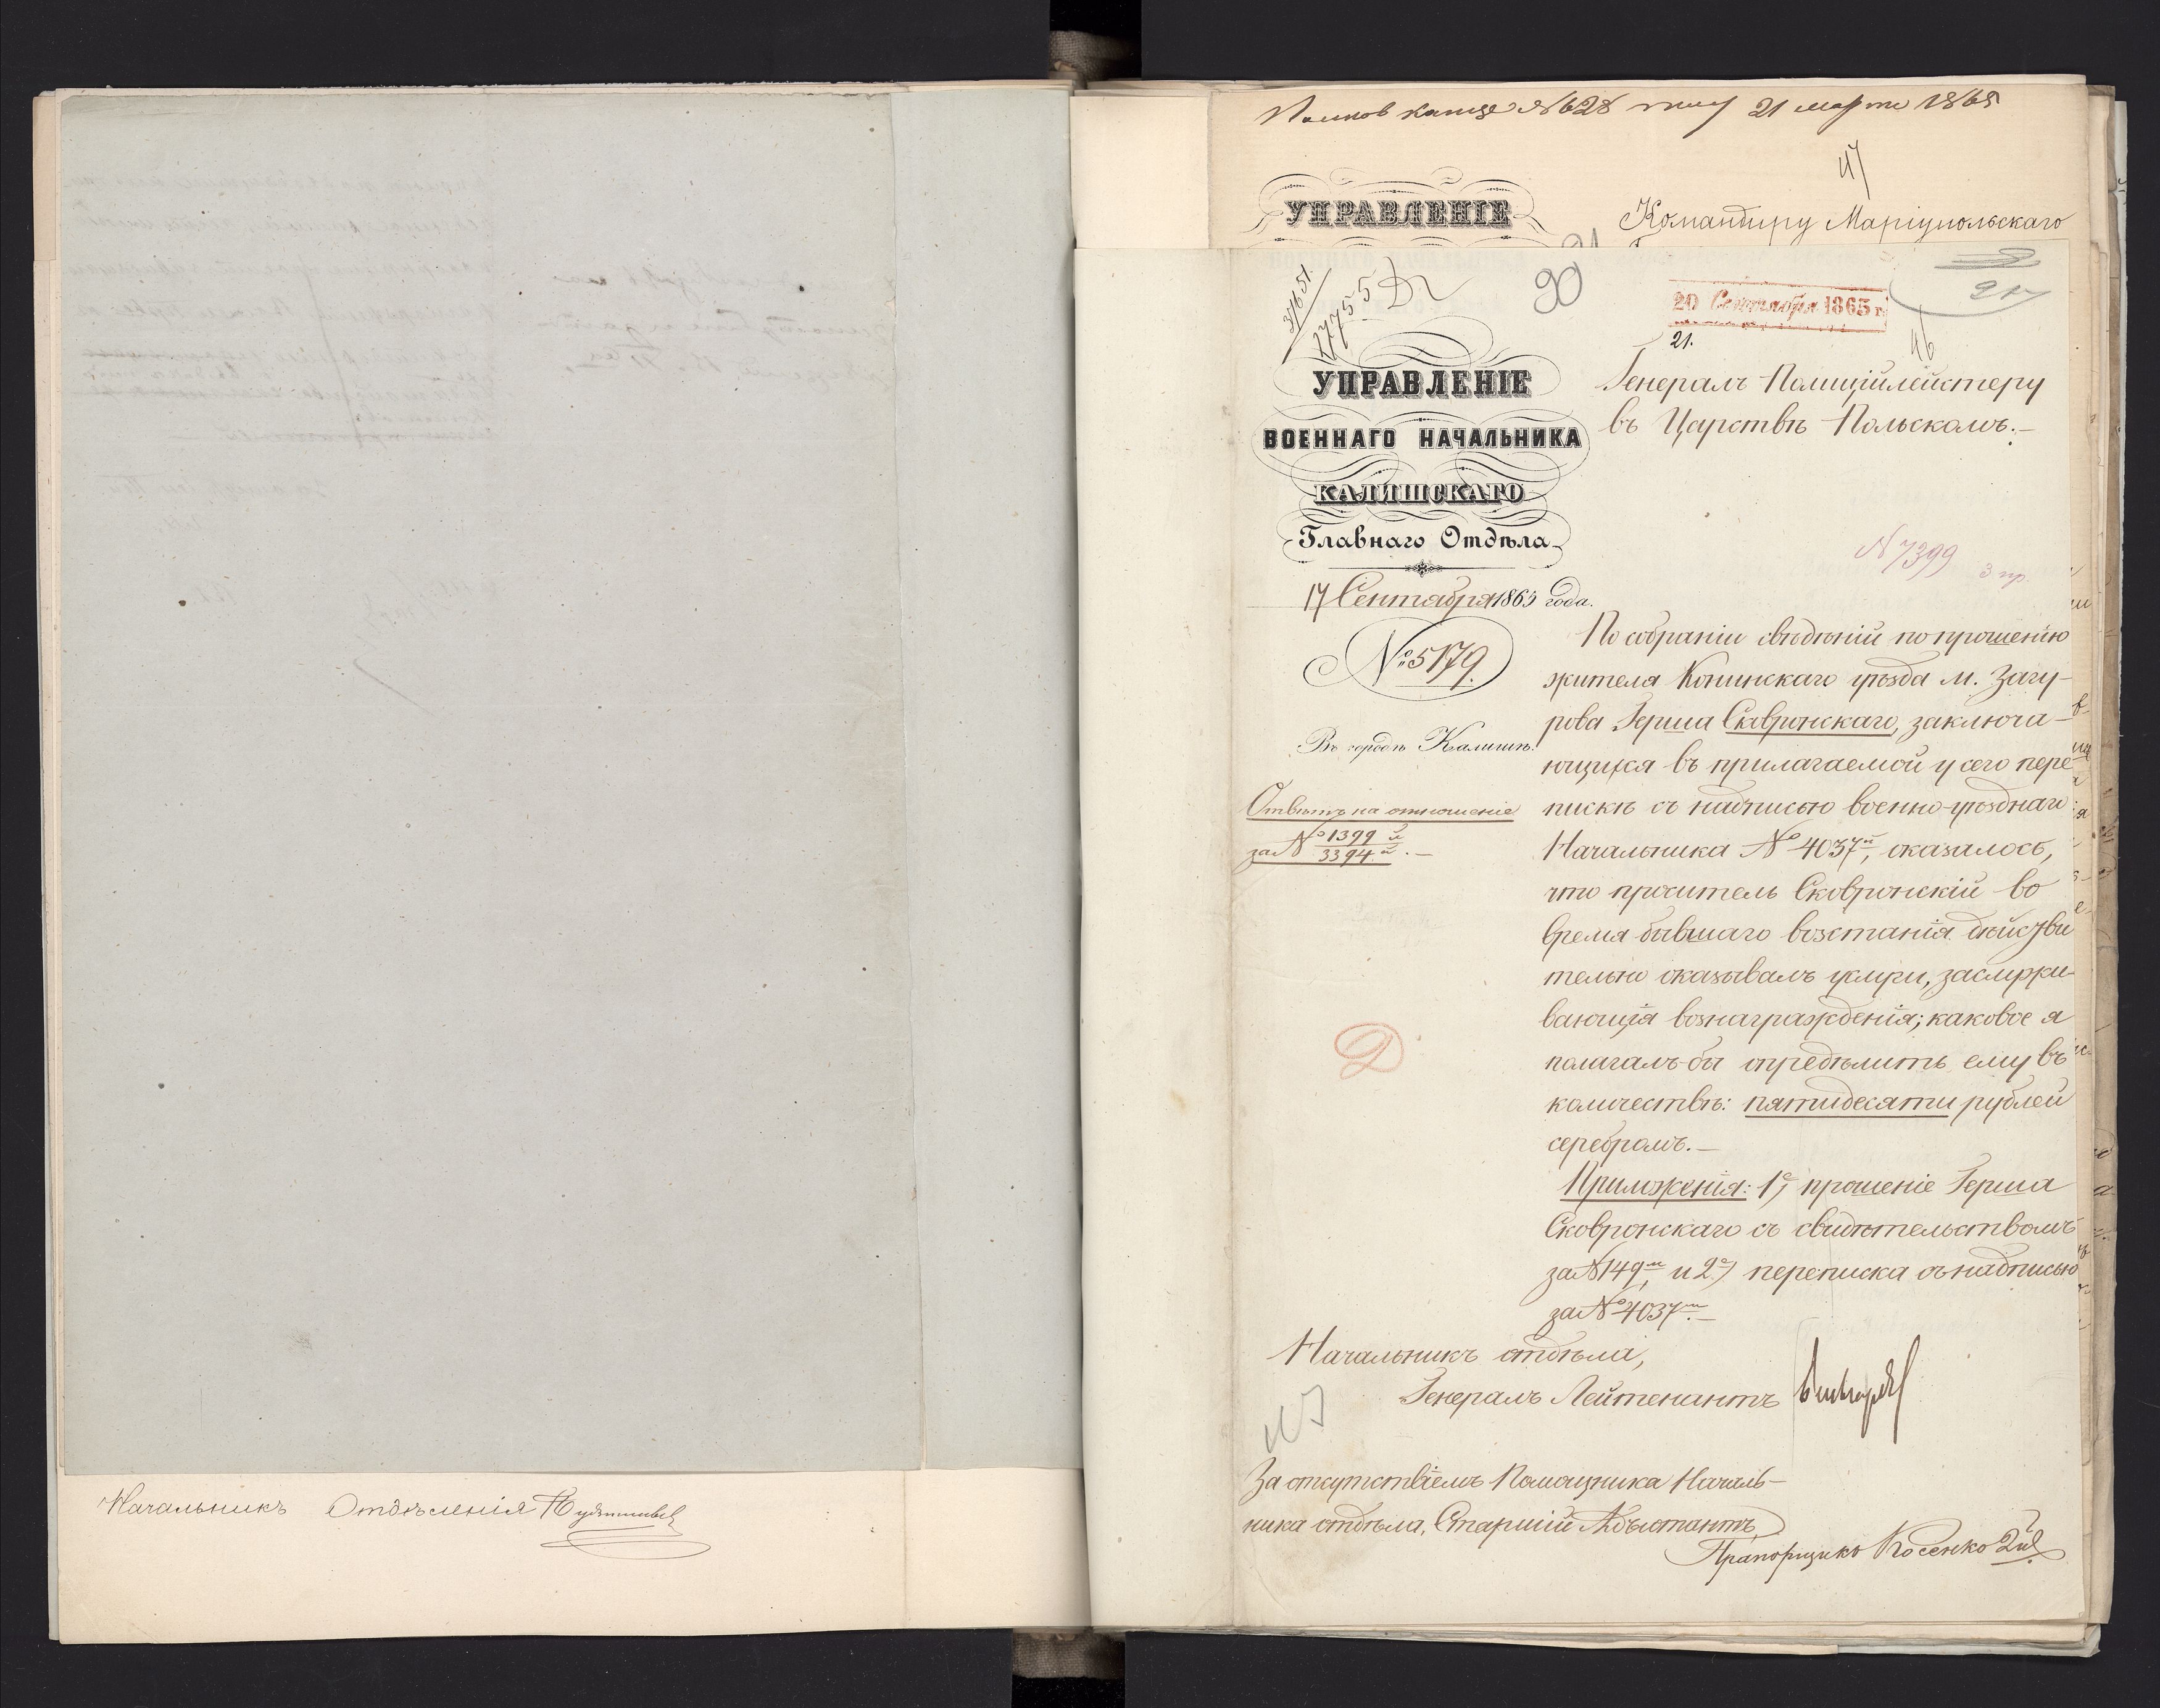 Начальникъ Отдѣленія
21 марта 1865
47
УПРАВЛЕНІЕ
Командиру Маріупольскаго
90
20 Сентября 1865 г.
21.
46
УПРАВЛЕНІЕ
ВОЕННАГО НАЧАЛЬНИКА
КАЛИШСКАГО
Главнаго Отдѣла
17 Сентября 1865 года.
№ 5179.
Въ городѣ Калишѣ.
Отвѣтъ на отношеніе
за № 1399 й
3394 й. —
Генералъ-Полиційлейстеру
въ Царствѣ Польскомъ. —
N 7399
3 пр.
По собраніи свѣдѣній по прошенію
жителя Конинскаго уѣзда м. Загу-
рова Герша Сковронскаго, заключа-
ющихся въ прилагаемой у сего пере-
пискѣ съ надписью военно-уѣзднаго
Начальника № 4037й, оказалось,
что проситель Сковронскій во
время бывшаго возстанія дѣйстви
тельно оказывалъ услуги, заслужи-
вающія вознагражденія; каковое я
полагалъ-бы опредѣлить ему въ
количествѣ: пятидесяти рублей
серебромъ. —
Приложенія: 1е, прошеніе Герша
Сковронскаго съ свидѣтельствомъ
за № 149м и 2е, переписка съ надписью
за № 4037м. —
Начальникъ отдѣла,
Генералъ Лейтенантъ
За отсутствіемъ Помощника Началь-
ника отдѣла, Старшій Адъютантъ,
Прапорщикъ Косенко 2й